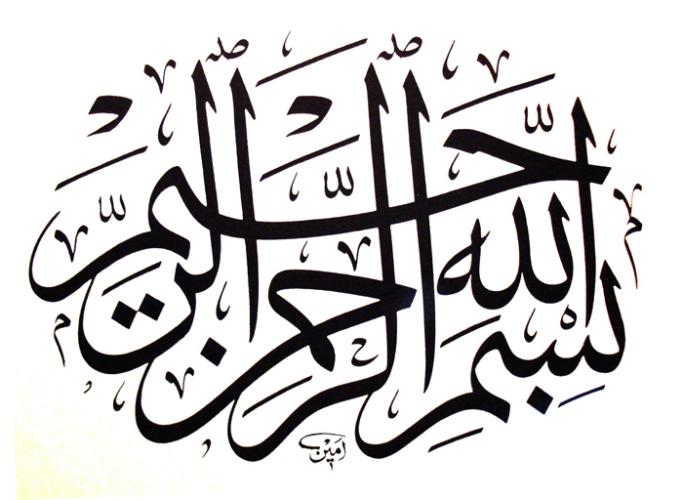 بِسْمِ اللّٰهِ الرَّحْمٰنِ الرَّحِيمِ
امين